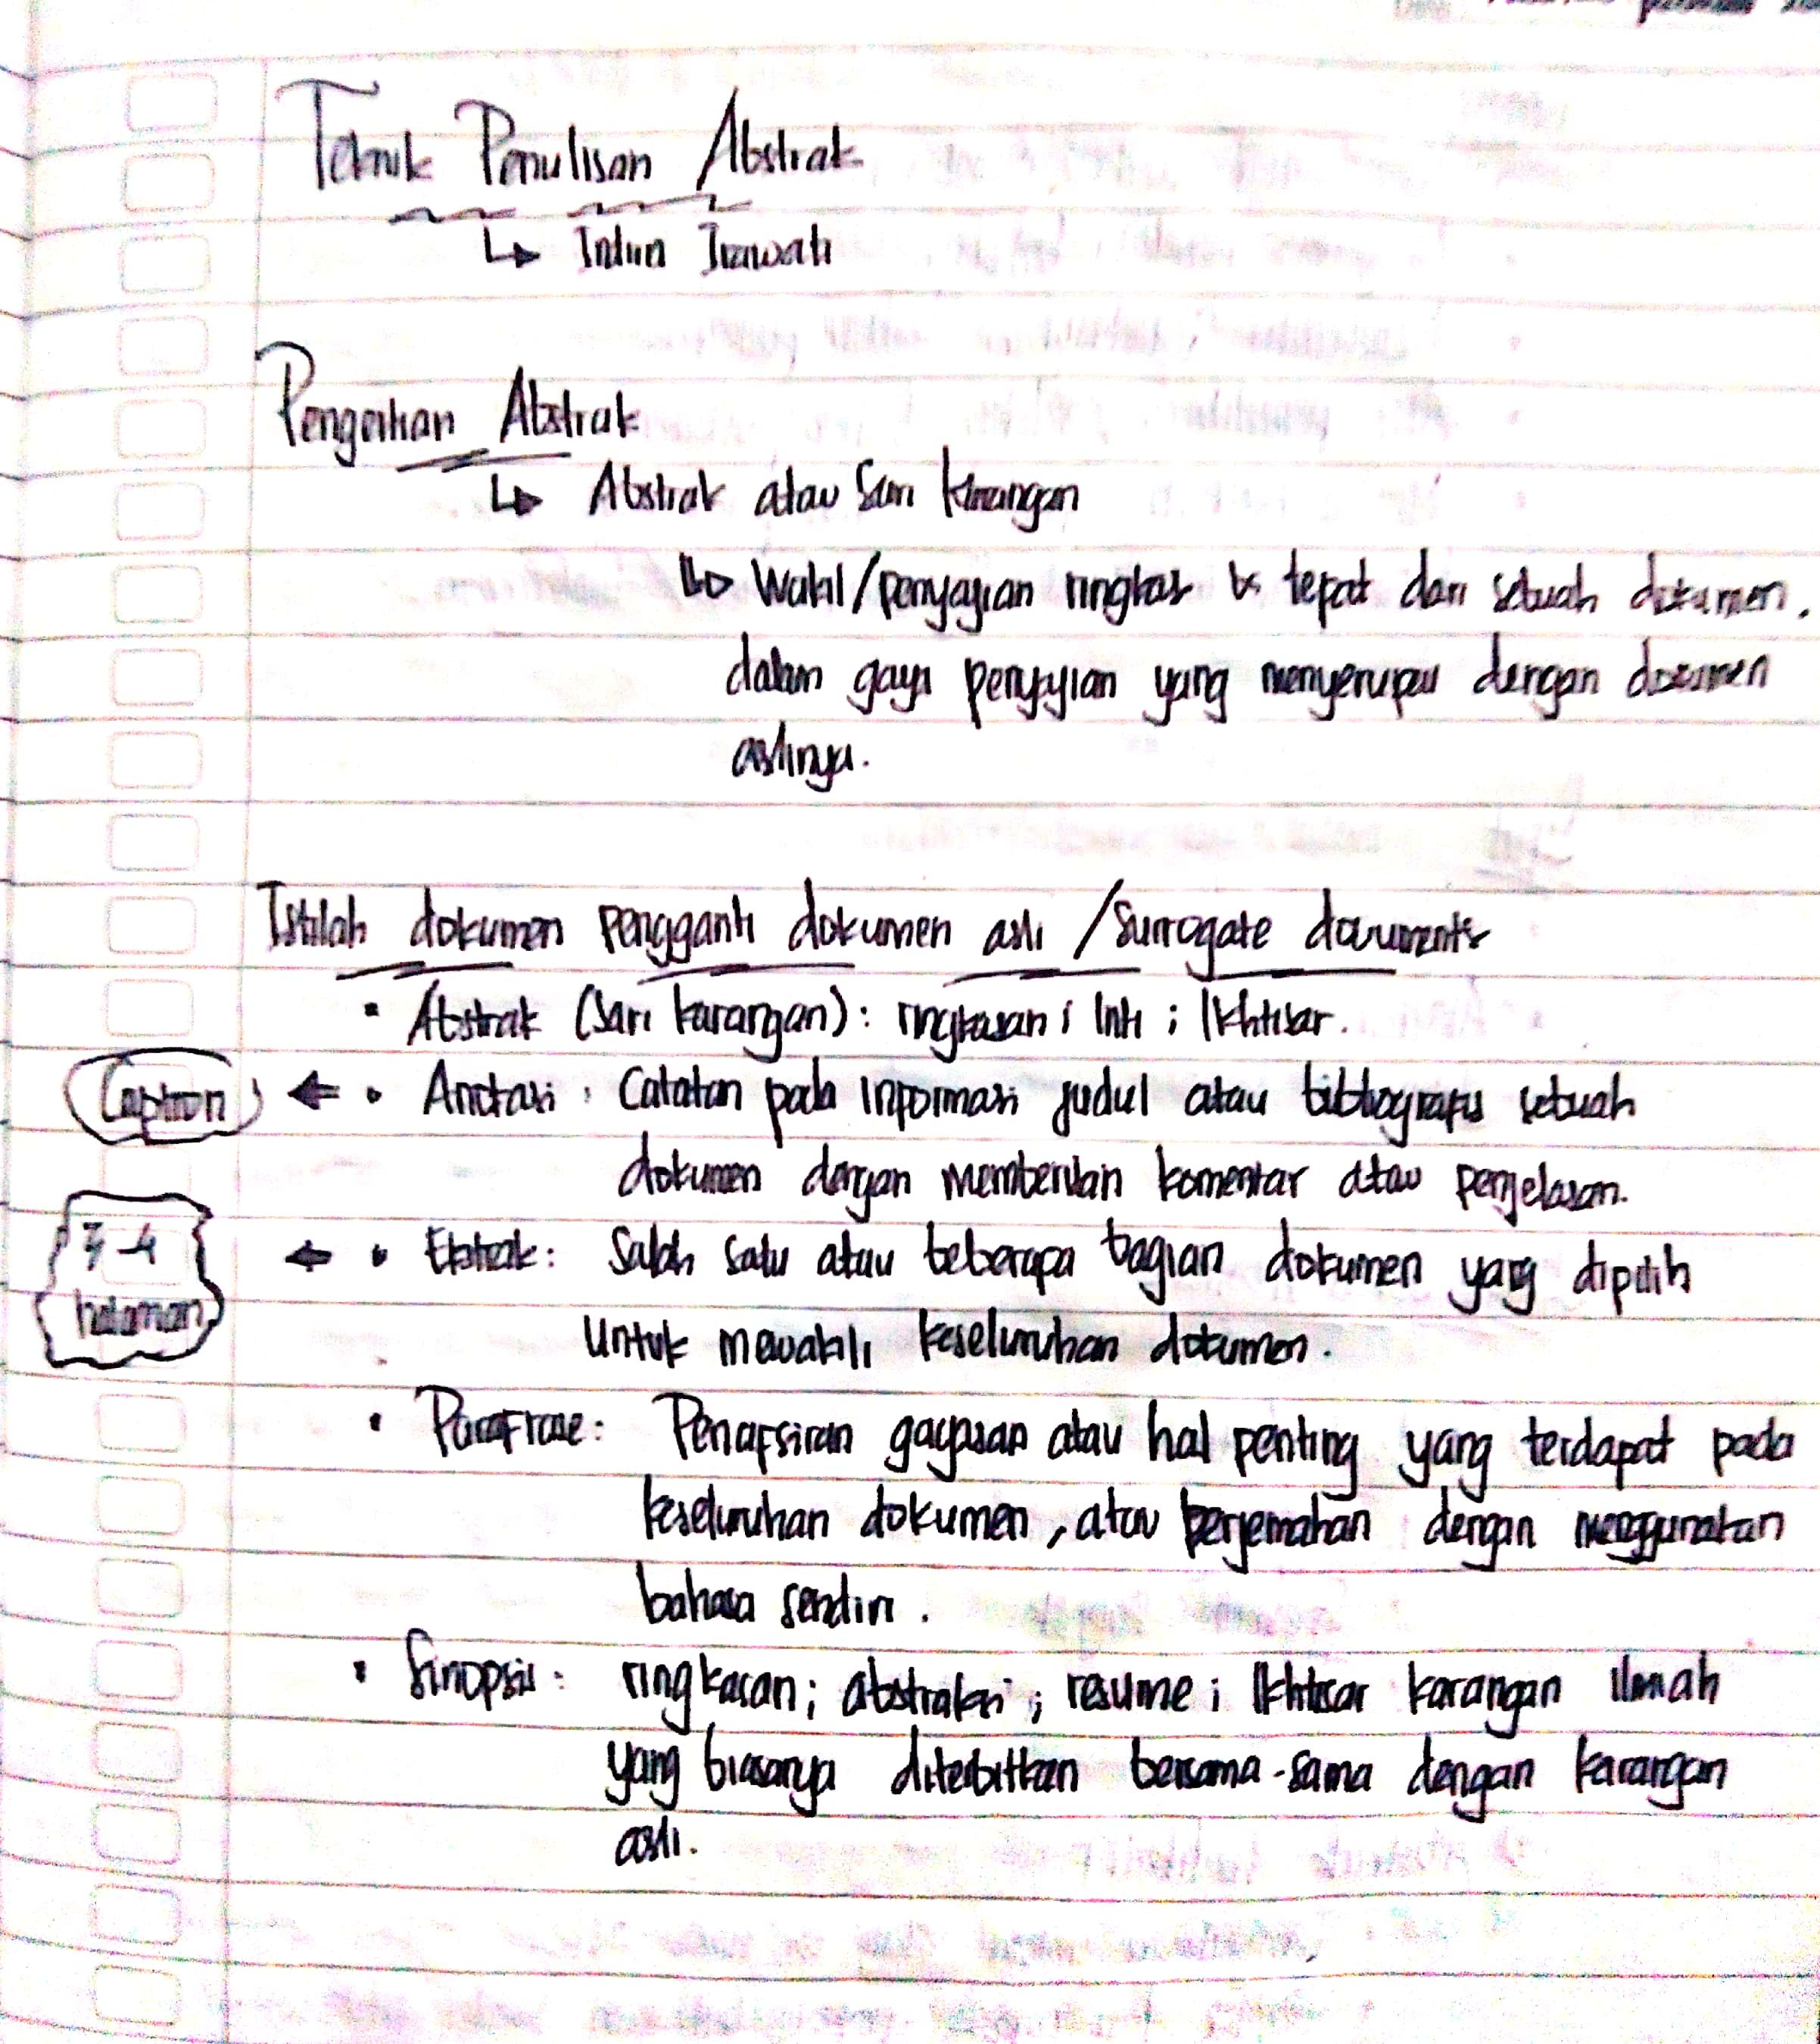 Teknik Penulisan Abstrak
↳ Indira Irawati
Pengertian Abstrak
↳ Abstrak atau Sari Karangan
↳ Wakil/penyajian ringkas & tepat dari sebuah dokumen.
dalam gaya penyajian yang menyerupai dengan dokumen
aslinya.
Istilah dokumen pengganti dokumen asli /Surrogate documents
• Abstrak (Sari karangan): ringkasan; Inti; Ikhtisar.
Caption ← • Anotasi: Catatan pada informasi judul atau bibliografis sebuah
dokumen dengan memberikan komentar atau penjelasan.
3-4 halaman ← • Ekstrak: Salah satu atau beberapa bagian dokumen yang dipilih
untuk mewakili keseluruhan dokumen.
• Parafrase: Penafsiran gagasan atau hal penting yang terdapat pada
keseluruhan dokumen, atau perjemahan dengan menggunakan
bahasa sendiri.
• Sinopsis: ringkasan; abstraksi; resume; Ikhtisar karangan ilmiah
yang biasanya diterbitkan bersama-sama dengan karangan
asli.